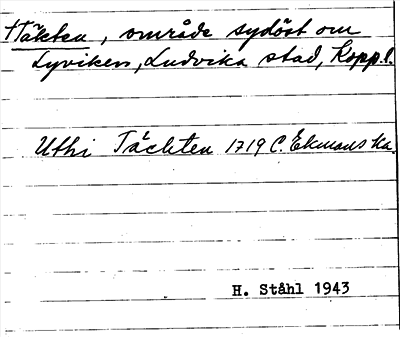 Täkten, område sydöst om
Lyviken, Ludvika stad, Kopp.l.
Uthi Tächten 1719 C. Ekmans ka.
H. Ståhl 1943